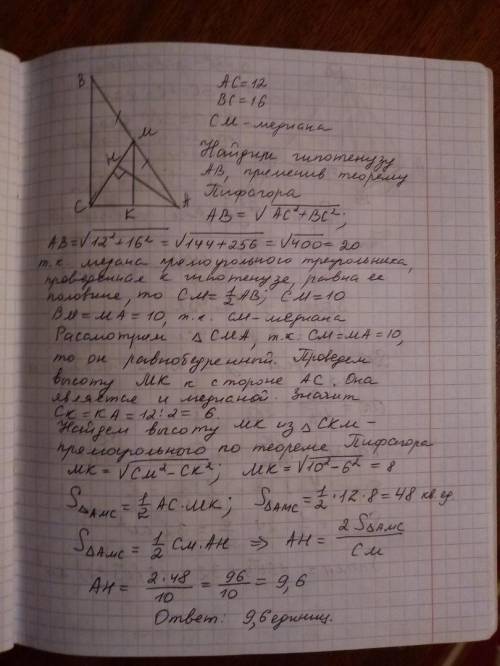 B
M
H
C
K
A
AC=12
BC=16
CM-медиана
Найдим гипотенузу
AB, применив теорему
Пифагора
AB=√AC²+BC²;
AB=√12²+16²=√144+256=√400=20
т.к. медана прямоугольного треугольника,
проведенная к гипотенузе, равна ее
половине, то CM=1/2AB; CM=10
BM=MA=10, т.к. CM-медиана
Расмотрим △CMA, т.к. CM=MA=10,
то он равнобедренный. Проведем
высоту MK к стороне AC. Она
является и медианой. Значит
CK=KA=12:2=6
Найдем высоту MK из △CKM-
прямоугольного по теореме Пифагора
MK=√CM²-CK²; MK=√10²-6²=8
S△AMC=1/2AC·MK; S△AMC=1/2·12·8=48 кв.ед.
S△AMC=1/2CM·AH ⇒ AH=2S△AMC/CM
AH=2·48/10=96/10=9,6
Ответ: 9,6 единиц.